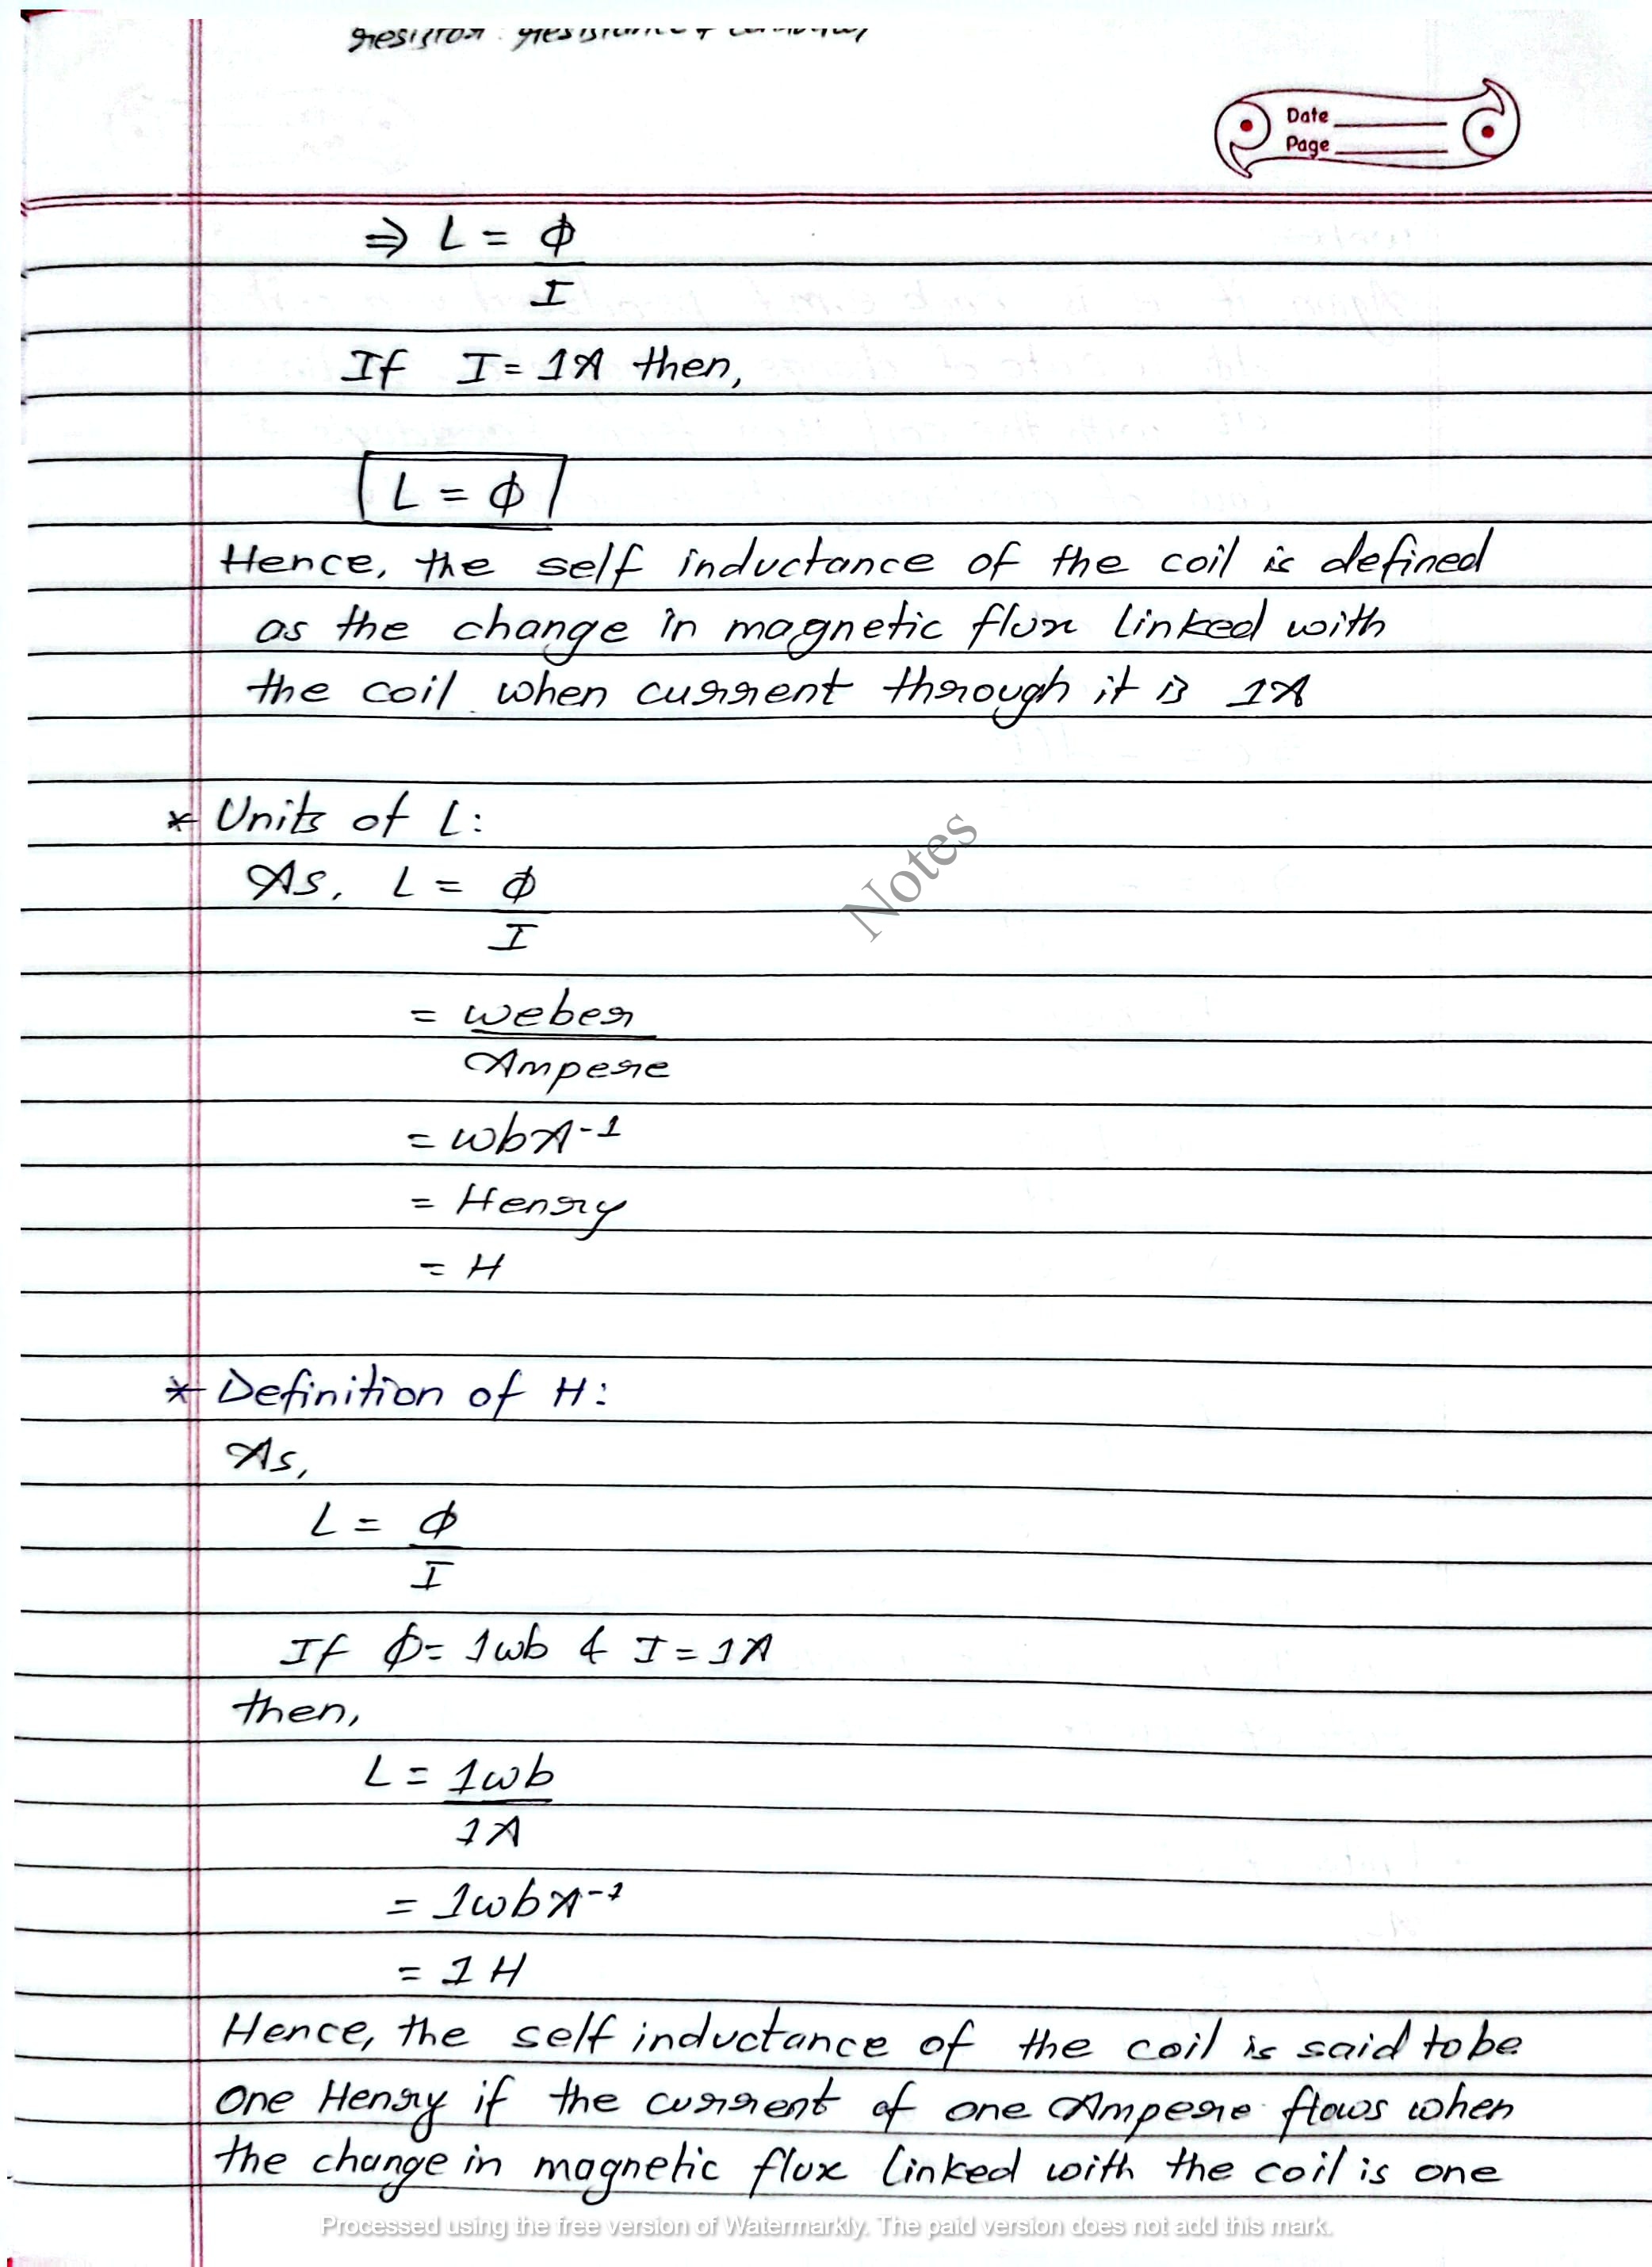 resistor resistance &
Date
Page
⇒ L = Φ
I
If I = 1A then,
L = Φ
Hence, the self inductance of the coil is defined
as the change in magnetic flux linked with
the coil when current through it is 1A
* Units of L:
As, L = Φ
I
= weber
Ampere
= wbA⁻¹
= Henry
= H
Notes
* Definition of H:
As,
L = Φ
I
If Φ = 1wb & I = 1A
then,
L = 1wb
1A
= 1wbA⁻¹
= 1 H
Hence, the self inductance of the coil is said to be
one Henry if the current of one Ampere flows when
the change in magnetic flux linked with the coil is one
Processed using the free version of Watermarkly. The paid version does not add this mark.